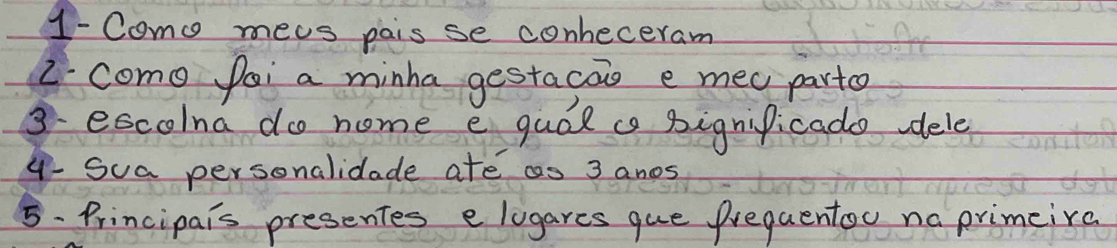 1- Como meus pais se conheceram
2- Como foi a minha gestação e meu parto
3- escolha do nome e quál o significado dele
4- Sua personalidade até os 3 anos
5- Principais presentes e lugares que frequentou na primeira